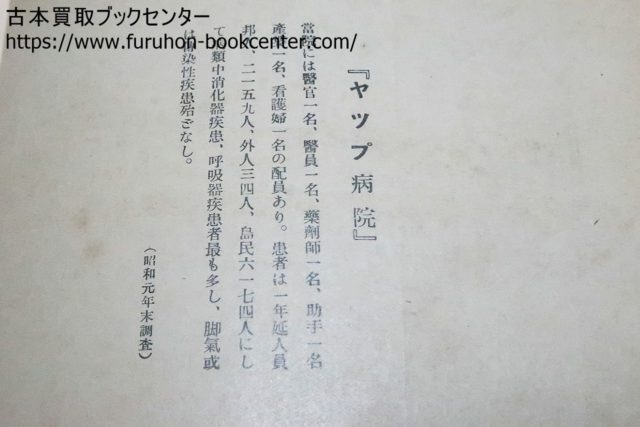 古本買取ブックセンター
https://www.furuhon-bookcenter.com/
『ヤップ病院』
當院には醫官一名、醫員一名、藥劑師一名、助手一名
產婆一名、看護婦一名の配員あり。患者は一年延人員
邦人、二一五九人、外人三四人、島民六一七四人にし
て病類中消化器疾患、呼吸器疾患者最も多し、脚氣或
は傳染性疾患殆どなし。
（昭和元年末調査）